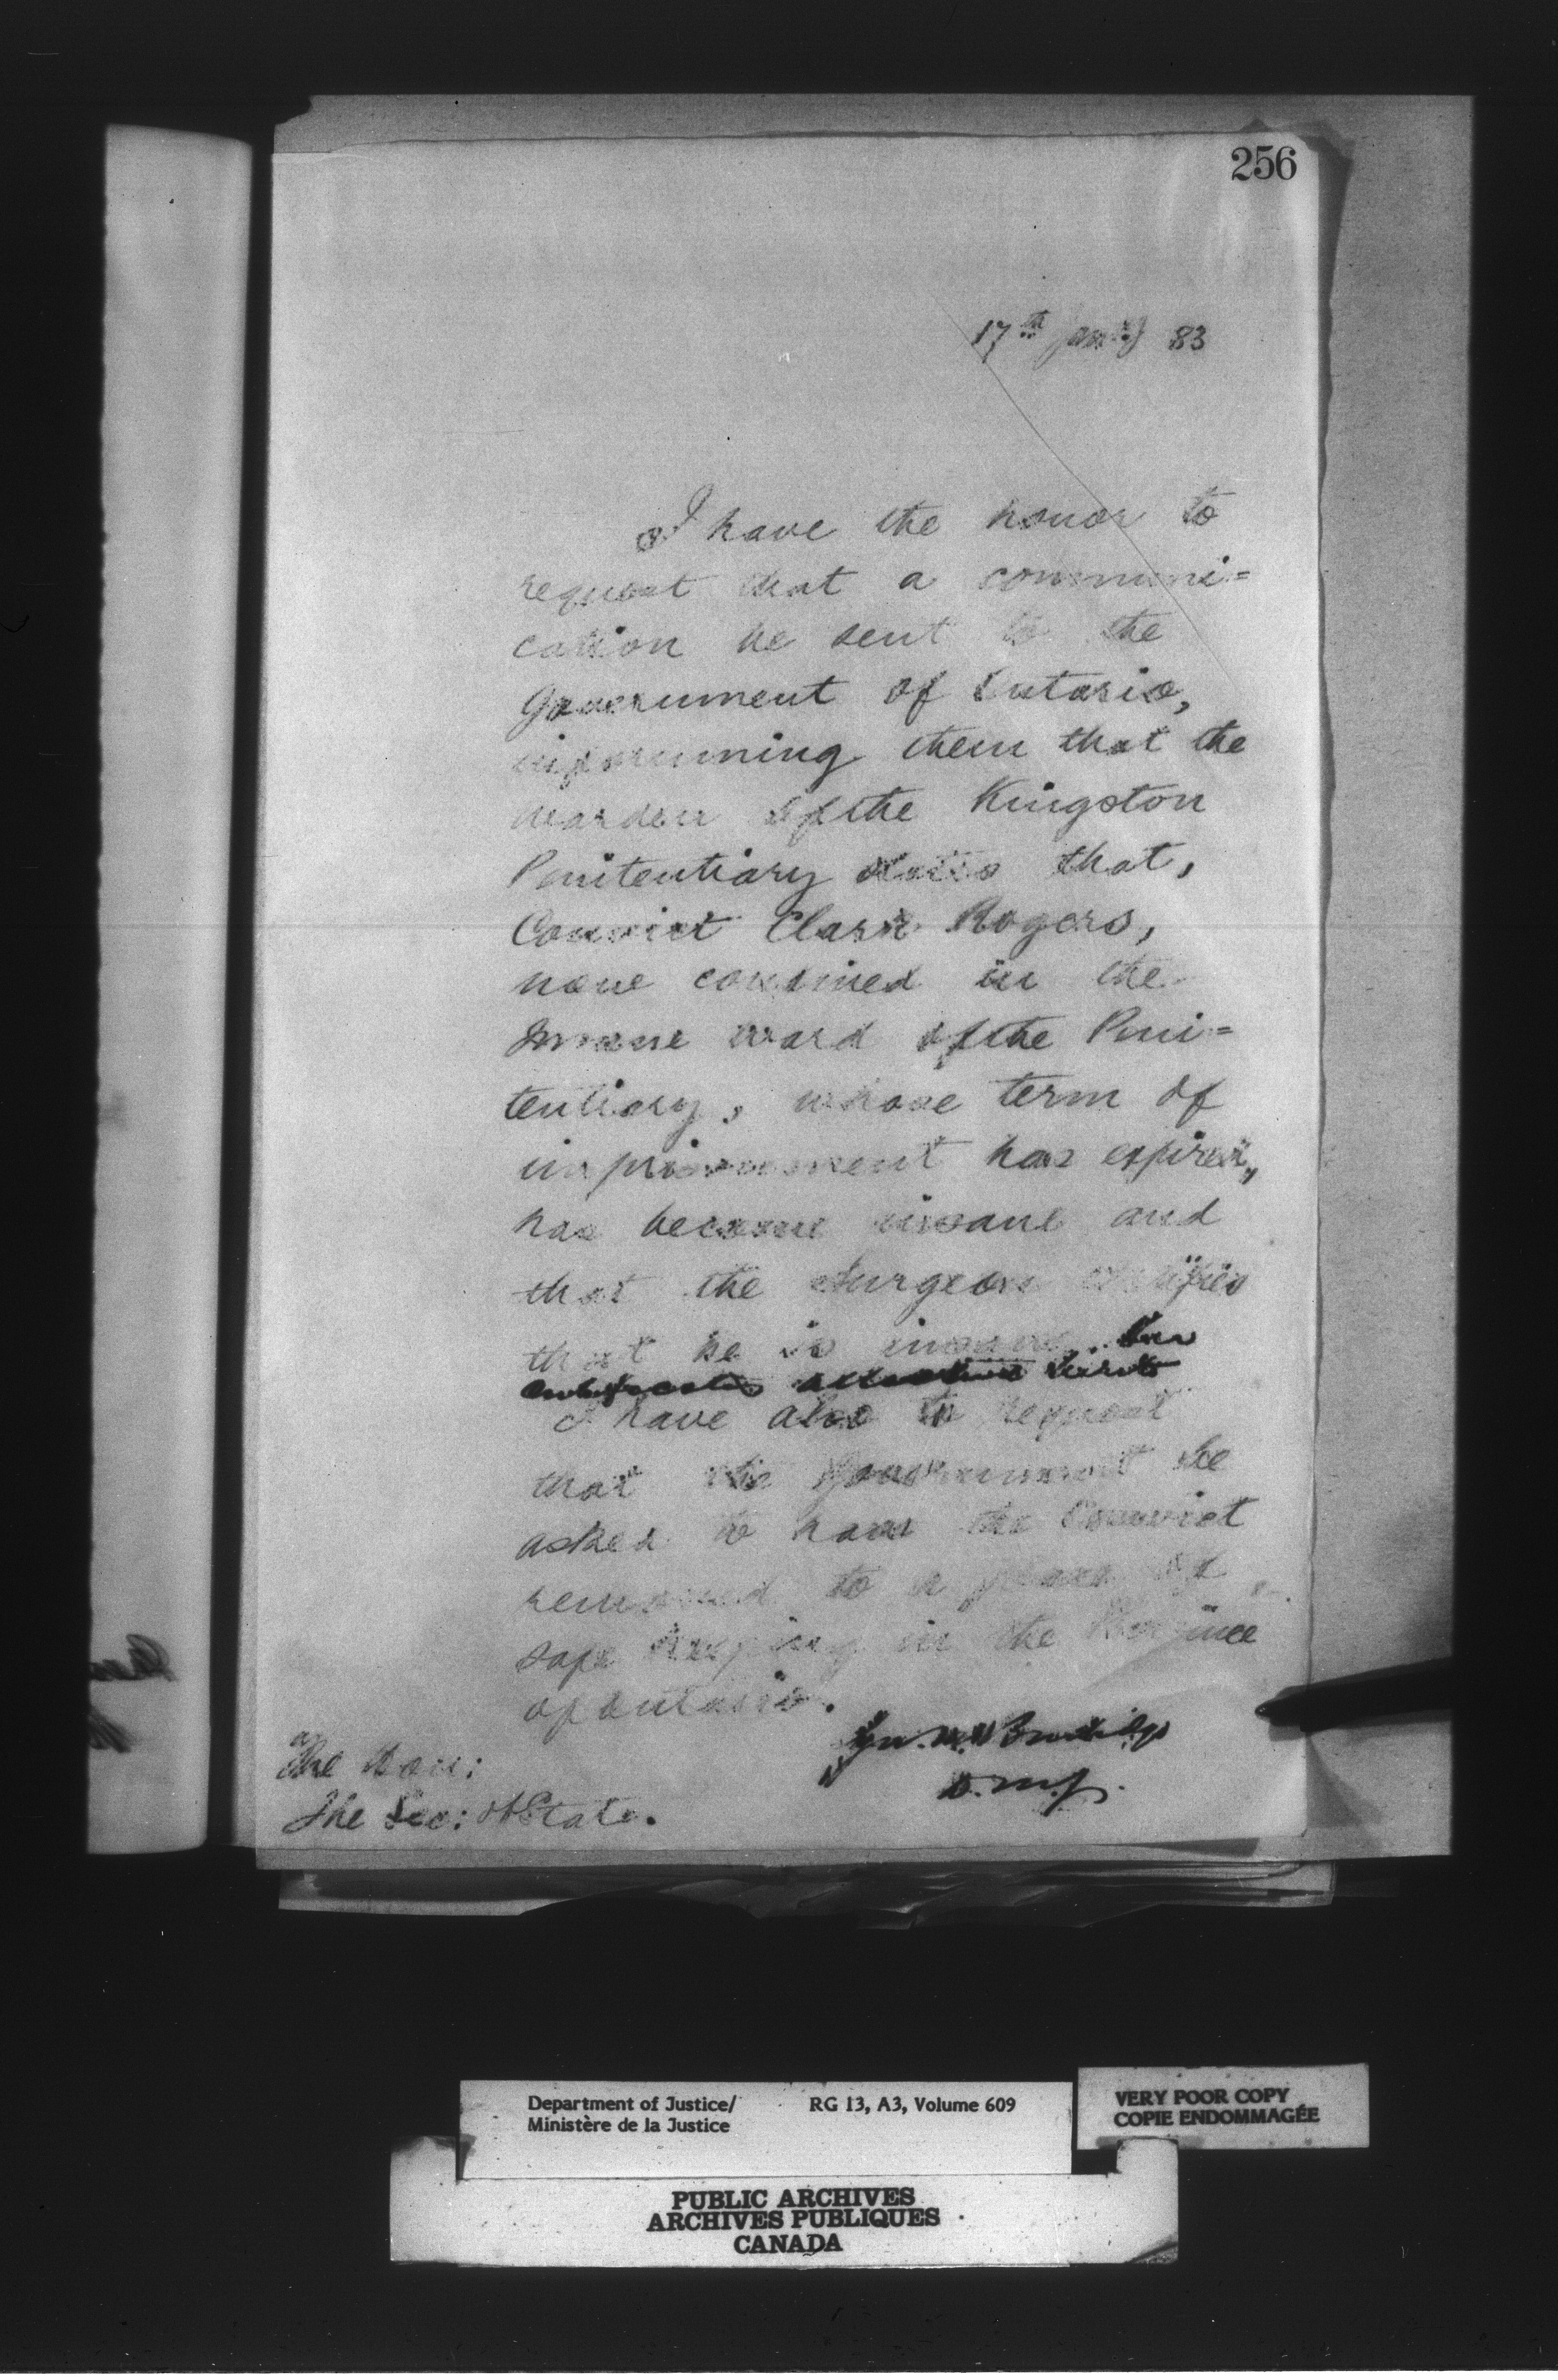 256
17th Jany 83
I have the honor to
request that a communi=
cation be sent to the
Government of Ontario,
informing them that the
Warden of the Kingston
Penitentiary states that,
Convict Clark Rogers,
now confined in the
Insane ward of the Peni=
tentiary, whose term of
imprisonment has expired,
has become insane and
that the Surgeon certifies
that he is insane. His
certificate attached herewith
I have also to request
that the Government be
asked to have the Convict
removed to a place of
safe keeping in the Province
of Ontario.
D.M.J.
The Hon:
The Sec: of State.
Department of Justice/
Ministère de la Justice
RG 13, A3, Volume 609
VERY POOR COPY
COPIE ENDOMMAGÉE
PUBLIC ARCHIVES
ARCHIVES PUBLIQUES
CANADA